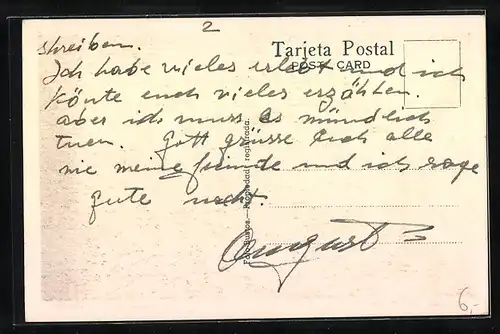 2
shreiben.
Tarjeta Postal
POST CARD
Ich habe vieles erlebt und ich
könte euch vieles erzählen.
aber ich muss es mündlich
tuen. Gott grüsse Euch alle
wie meine freunde und ich sage
gute nacht.
August
Propiedad registrada.
6,-